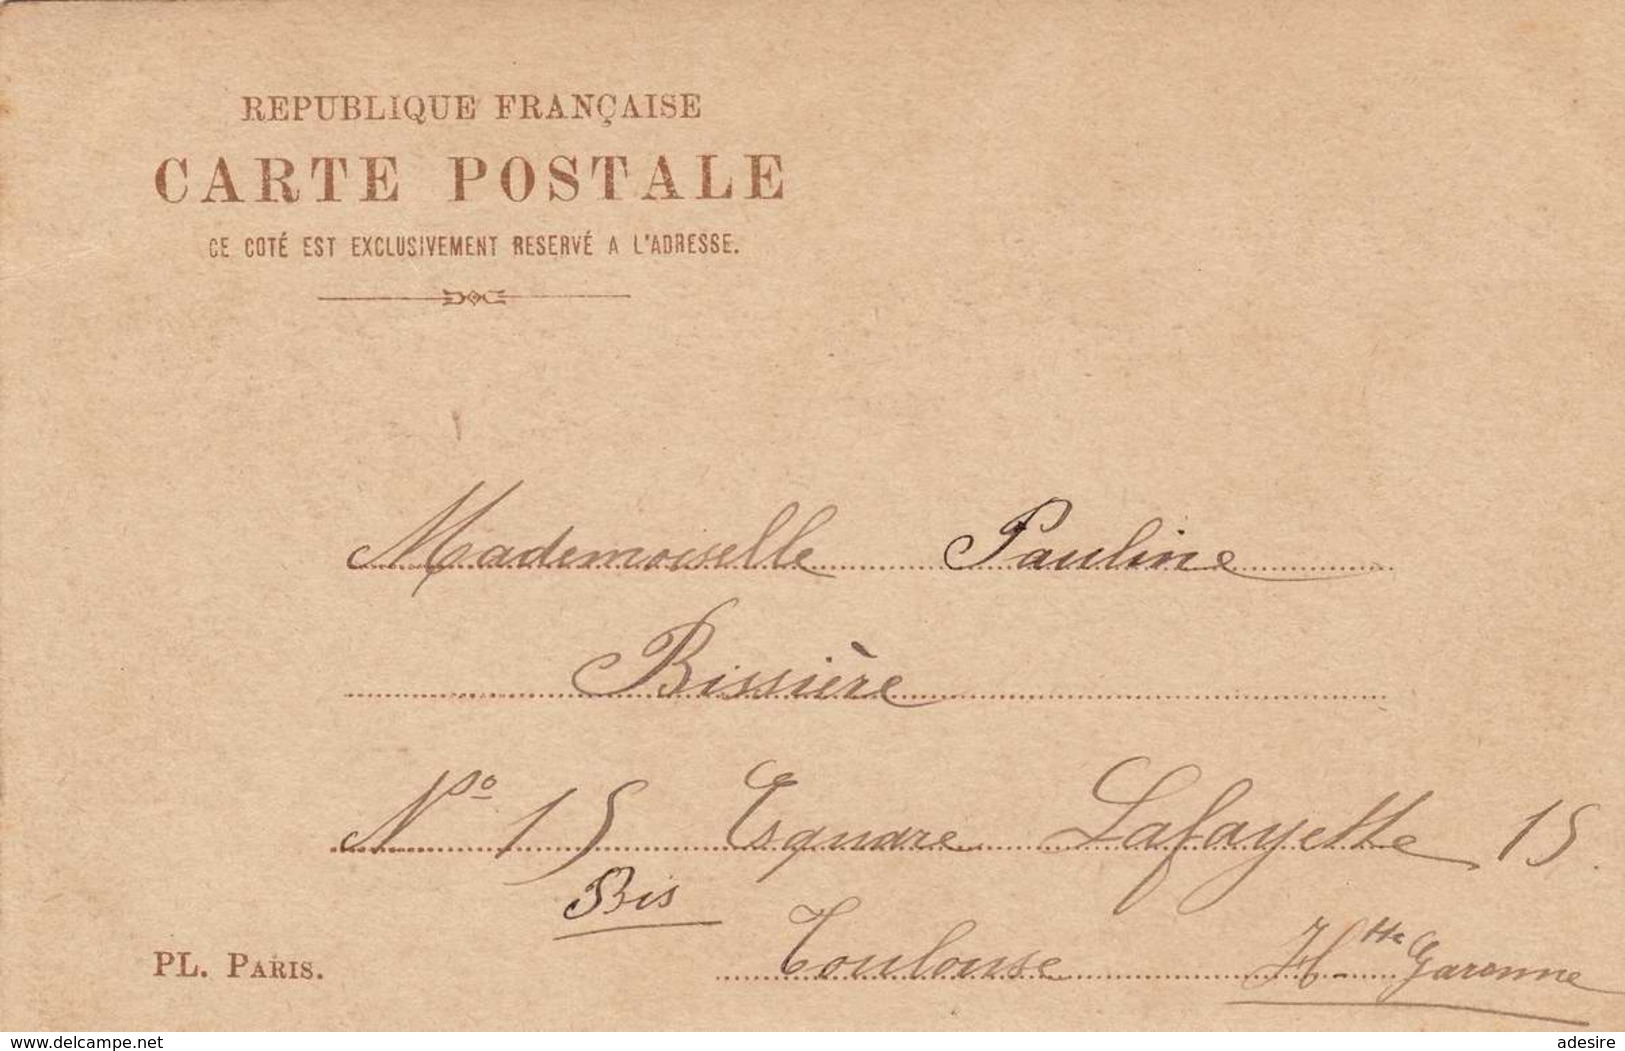 REPUBLIQUE FRANÇAISE
CARTE POSTALE
CE COTÉ EST EXCLUSIVEMENT RESERVÉ A L'ADRESSE.
Mademoiselle Pauline
Bissière
No 15 Esquare Lafayette 15.
Bis
Toulouse Htte Garonne
PL. PARIS.
www.delcampe.net
adesire